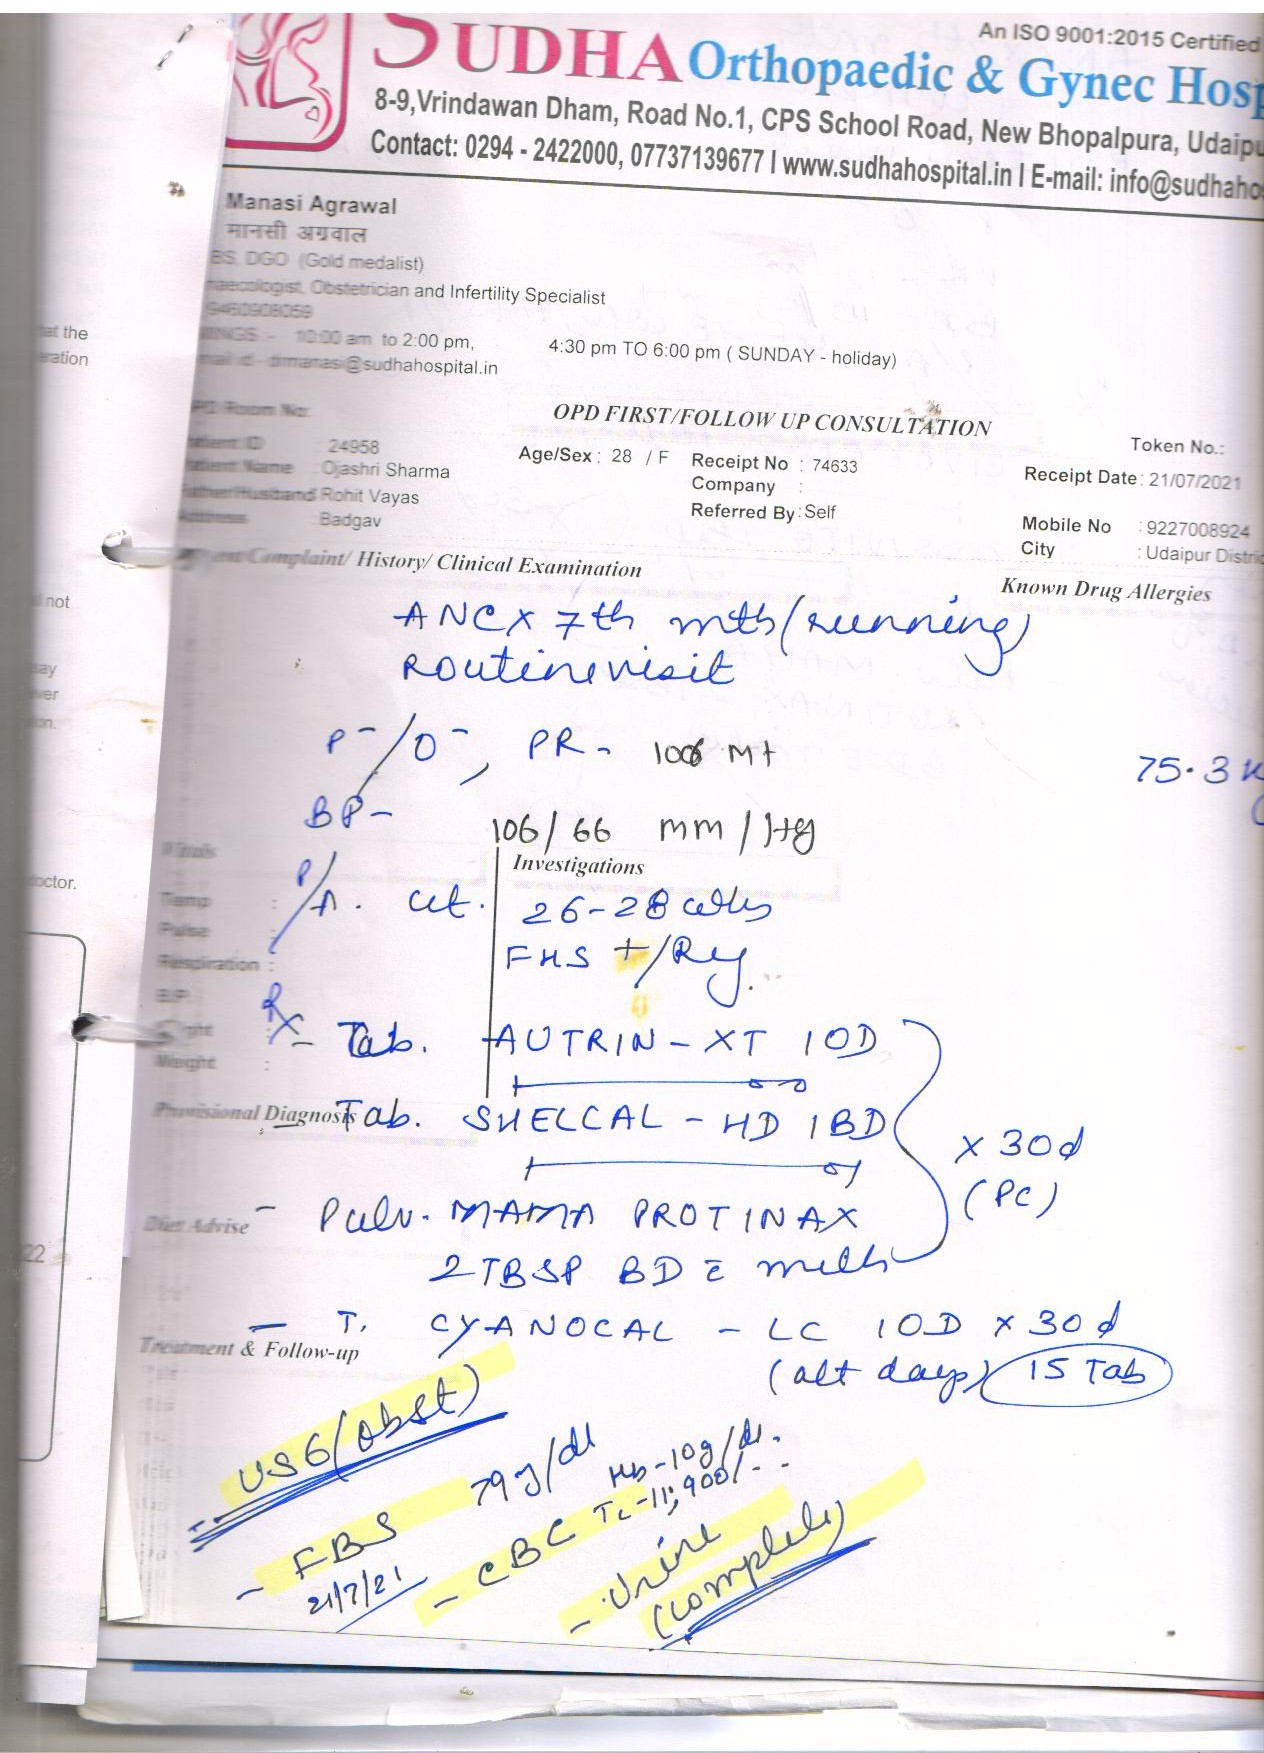 An ISO 9001:2015 Certified
SUDHA Orthopaedic & Gynec Hosp
8-9,Vrindawan Dham, Road No.1, CPS School Road, New Bhopalpura, Udaipu
Contact: 0294 - 2422000, 07737139677 I www.sudhahospital.in I E-mail: info@sudhahos
Manasi Agrawal
मानसी अग्रवाल
BS, DGO (Gold medalist)
naecologist, Obstetrician and Infertility Specialist
9460908059
MINGS - 10:00 am to 2:00 pm, 4:30 pm TO 6:00 pm ( SUNDAY - holiday)
mail id - drmanasi@sudhahospital.in
PD Room No:
OPD FIRST/FOLLOW UP CONSULTATION
Token No.:
atient ID : 24958 Age/Sex : 28 / F Receipt No : 74633 Receipt Date : 21/07/2021
atient Name : Ojashri Sharma Company :
ather/Husband Rohit Vayas Referred By : Self Mobile No : 9227008924
Address : Badgav City : Udaipur Distric
Complaint/ History/ Clinical Examination Known Drug Allergies
ANC x 7th mth (running)
Routine visit
P-/O-, PR - 106 Mt 75.3 K
BP- 106/66 mm/Hg
Vitals Investigations
P/A. ut. 26-28 wks
FHS +/Rg.
Temp :
Pulse :
Respiration :
B/P
ght
Weight :
Rx
- Tab. AUTRIN - XT 1OD
Provisional Diagnosis
Tab. SHELCAL - HD 1BD
x 30d
(PC)
Diet Advise
- Pulv. MAMA PROTINAX
2TBSP BD c milk
- T. CYANOCAL - LC 1OD x 30d
(alt days) 15 Tab
Treatment & Follow-up
USG (obst)
- FBS 79 g/dl
21/7/21
- CBC Hb - 10g/dl.
Tc - 11,900/--
- Urine
(complete)
at the
eration
not
say
ver
on.
doctor.
22